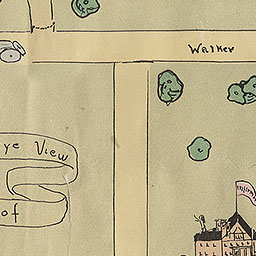 Walker
ye View
of